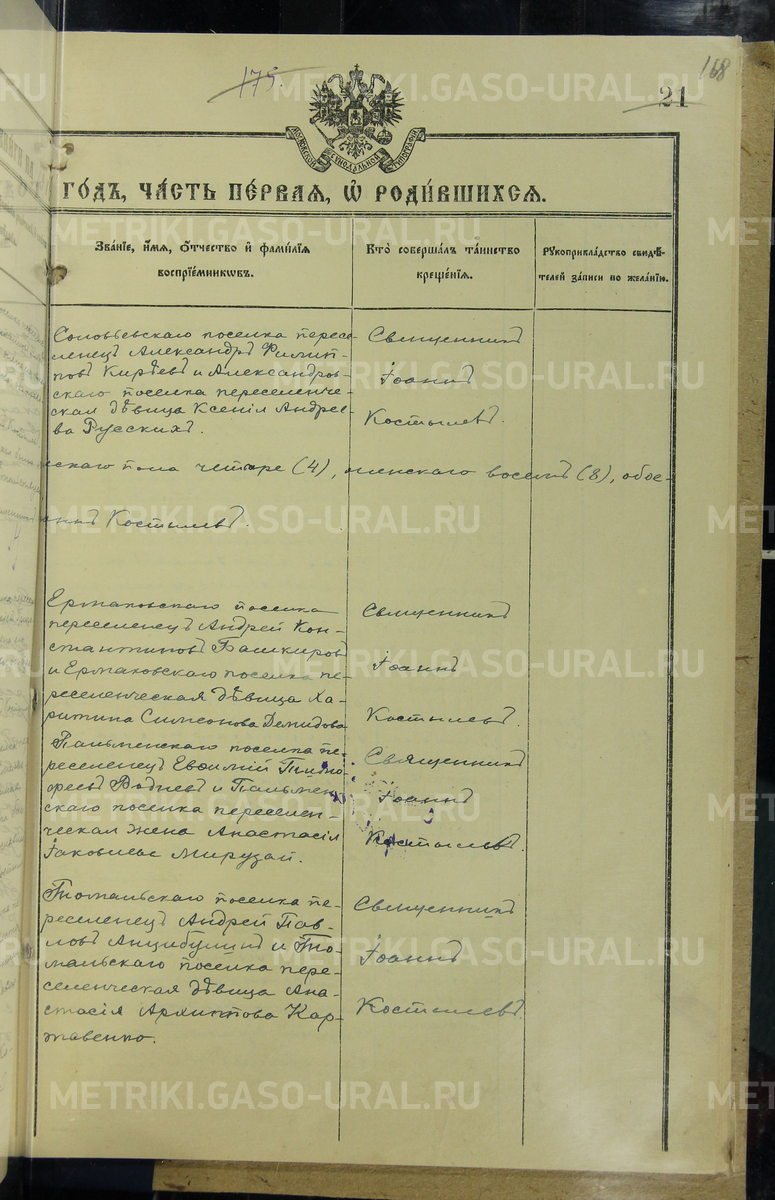 175.
168
21
МОСКОВСКОЙ СѴНОДАЛЬНОЙ ТИПОГРАФІИ
ГО́ДЪ, ЧА́СТЬ ПЕ́РВАЯ, Ѡ҆ РОДИ́ВШИХСЯ.
Зва́нїе, и҆́мя, ѻ҆́тчество и҆ фами́лїя
воспрїе́мникѡвъ.
Кто̀ соверша́лъ та́инство
креще́нїя.
Рꙋкоприкла́дство свидѣ́-
телей за́писи по жела́нїю.
Соловьевскаго поселка пересе-
ленецъ Александръ Филип-
повъ Кирѣевъ и Александров-
скаго поселка переселенче-
ская дѣвица Ксенія Андрее-
ва Русскихъ.
Священникъ
Іоаннъ
Костылевъ.
скаго пола четыре (4), женскаго восемь (8), обое-
аннъ Костылевъ.
Ермаковскаго поселка
переселенецъ Андрей Кон-
стантиновъ Башкировъ
и Ермаковскаго поселка пе-
реселенческая дѣвица Ха-
ритина Симеонова Демидова
Священникъ
Іоаннъ
Костылевъ.
поселка пе-
реселенецъ Евѳимій Тимо-
феевъ и
скаго поселка переселен-
ческая жена Анастасія
Іаковлева
Священникъ
Іоаннъ
Костылевъ.
поселка пе-
реселенецъ Андрей Пав-
ловъ Анцибулинъ и
поселка пере-
селенческая дѣвица Ана-
стасія Архиппова Кар-
тавенко.
Священникъ
Іоаннъ
Костылевъ.
METRIKI.GASO-URAL.RU